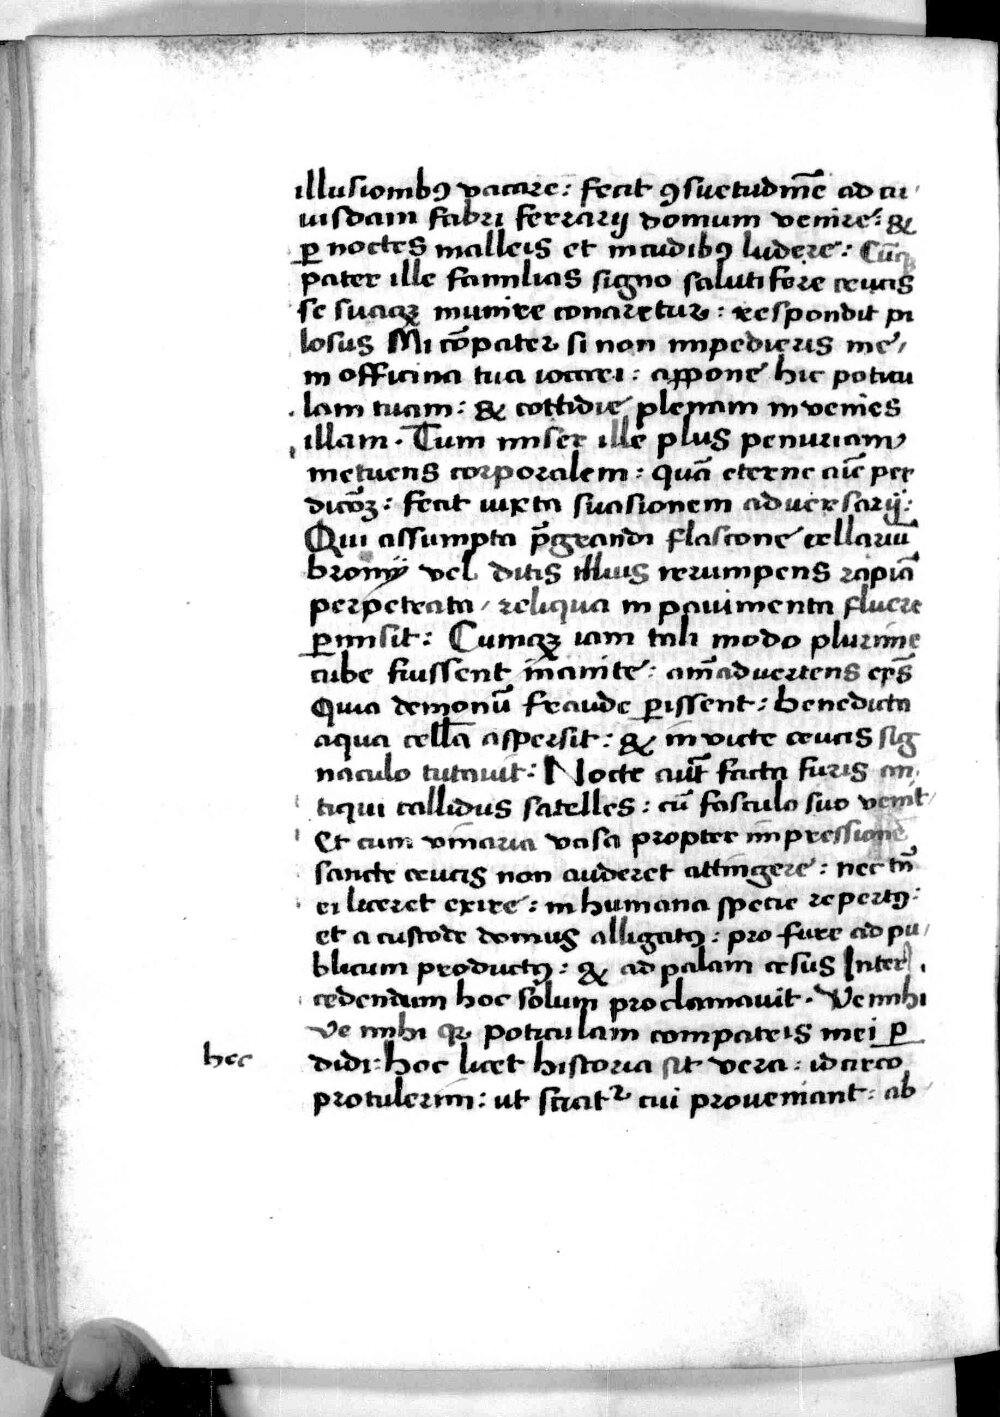 illusionibꝰ vacare: fecit ꝯsuetudinē ad cu
iusdam fabri ferrarij domum venire: &
ꝑ noctes malleis et incudibꝰ ludere: Cūqꝫ
pater ille familias signo salutifere crucis
se suaqꝫ munire conaretur: respondit pi
losus Mi cōpater si non impedieris me
in officina tua iocari: appone hic poticu
lam tuam: & cottidie plenam invenies
illam. Tum miser ille plus penuriam
metuens corporalem: quā eterne aīe per
dicōꝫ: fecit iuxta suasionem adversarij:
Qui assumpta p̄grandi flascone cellariū
bromij vel ditis illius rerumpens rapiā
perpetrata, reliqua in pavimenta fluere
ꝑmisit: Cumqꝫ iam tali modo plurime
cube fuissent inanite: aīadvertens ep̄s
Quia demonū fraude ꝑissent: benedicta
aqua cellā aspersit: & invicte crucis sig
naculo tutavit: Nocte aūt facta furis an
tiqui callidus satelles: cū fasculo suo venit
Et cum vinaria vasa propter impressionē
sancte crucis non auderet attingere: nec tn̄
ei liceret exire: in humana specie repertꝰ:
et a custode domus alligatꝰ: pro fure ad pu
blicum productꝰ: & ad palam cesus Inter
cedendum hoc solum proclamavit. Ve mihi
ve mihi qꝛ poticulam compatris mei ꝑ
hec
didi: hoc licet historia sit vera: idcirco
protulerim: ut sciatᷣ cui proveniant: ab